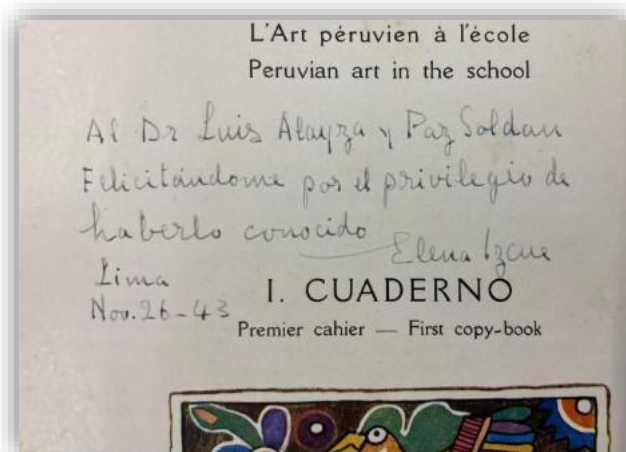 L'Art péruvien à l'école
Peruvian art in the school
Al Dr Luis Alayza y Paz Soldan
Felicitándome por el privilegio de
haberlo conocido
Elena Izcue
Lima
Nov. 26-43
I. CUADERNO
Premier cahier — First copy-book